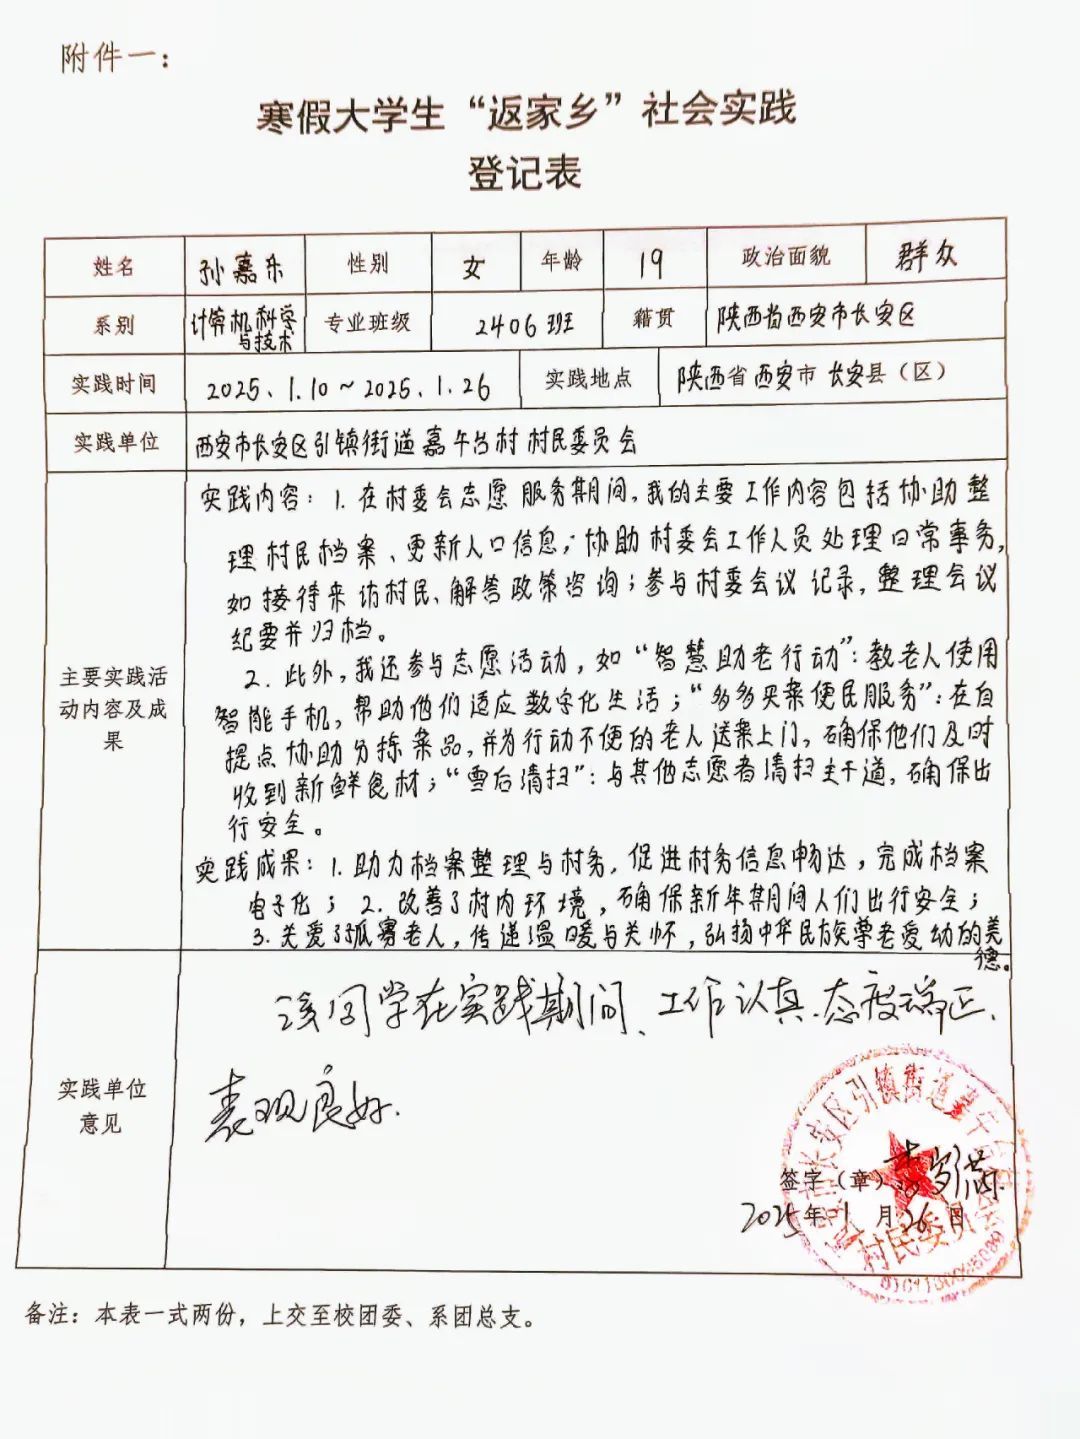 附件一：
寒假大学生“返家乡”社会实践
登记表
姓名 孙嘉乐 性别 女 年龄 19 政治面貌 群众
系别 计算机科学与技术 专业班级 2406班 籍贯 陕西省西安市长安区
实践时间 2025.1.10～2025.1.26 实践地点 陕西省西安市长安县（区）
实践单位 西安市长安区引镇街道嘉午台村村民委员会
主要实践活动内容及成果
实践内容：1.在村委会志愿服务期间，我的主要工作内容包括协助整
理村民档案、更新人口信息；协助村委会工作人员处理日常事务，
如接待来访村民、解答政策咨询；参与村委会议记录，整理会议
纪要并归档。
2.此外，我还参与志愿活动，如“智慧助老行动”：教老人使用
智能手机，帮助他们适应数字化生活；“多多买菜便民服务”：在自
提点协助分拣菜品，并为行动不便的老人送菜上门，确保他们及时
收到新鲜食材；“雪后清扫”：与其他志愿者清扫主干道，确保出
行安全。
实践成果：1.助力档案整理与村务，促进村务信息畅达，完成档案
电子化；2.改善了村内环境，确保新年期间人们出行安全；
3.关爱孤寡老人，传递温暖与关怀，弘扬中华民族尊老爱幼的美
德。
实践单位意见
该同学在实践期间、工作认真.态度端正、
表现良好.
签字（章）
2025年1月26日
村民委员会
备注：本表一式两份，上交至校团委、系团总支。